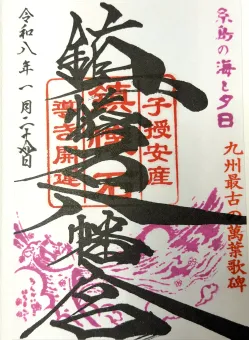 糸島の海と夕日
九州最古の萬葉歌碑
子授安産
鎮懐石
導き開運
鎮懐石八幡宮
令和八年一月二十日